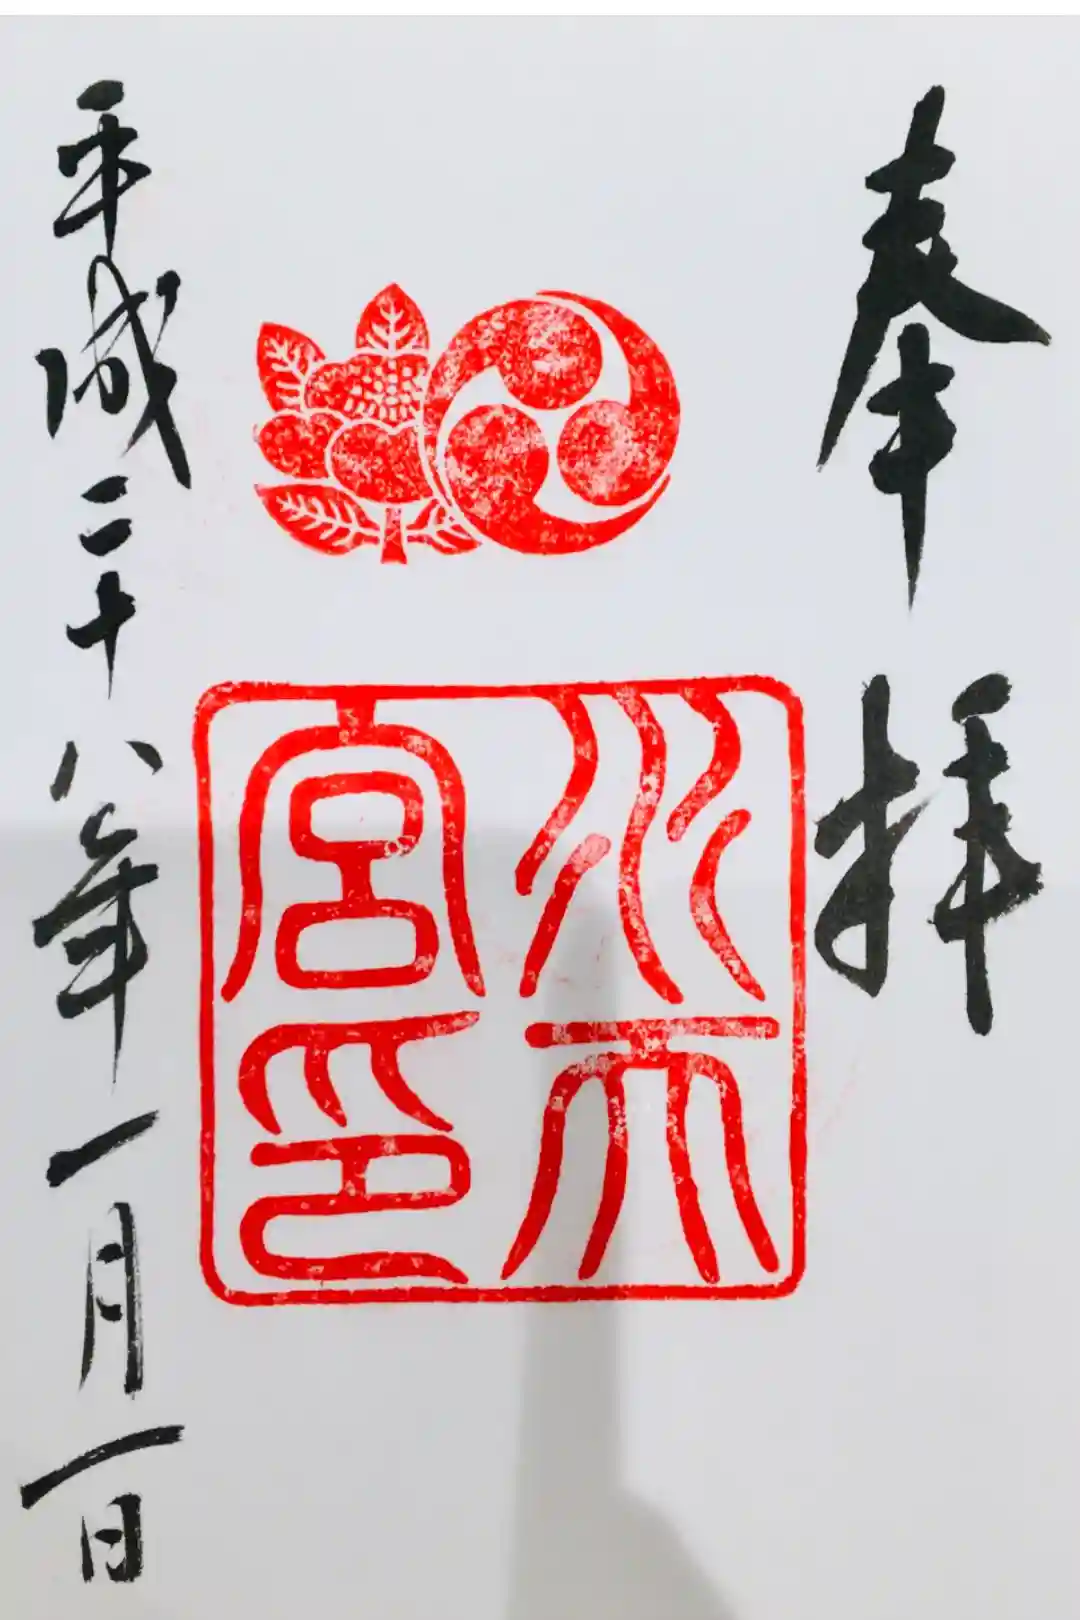 奉拝
水天
宮印
平成二十八年一月一日